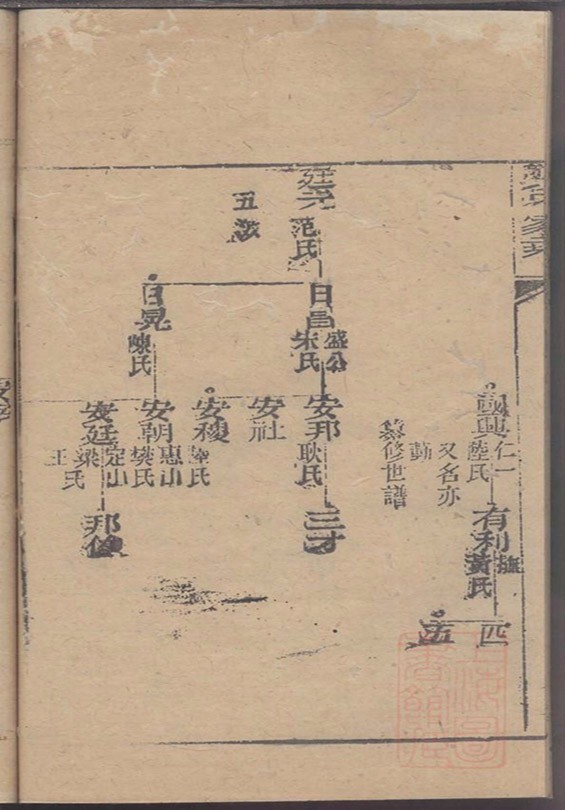 國興
仁一
陸氏
又名亦
勤
纂修世譜
有利
撫
黃氏
四
五
廷
范氏
五
日昌
盛公
朱氏
日晃
陳氏
安邦
耿氏
安社
安稷
氏
安朝
惠山
樊氏
安廷
定山
梁氏
王
三才
邦